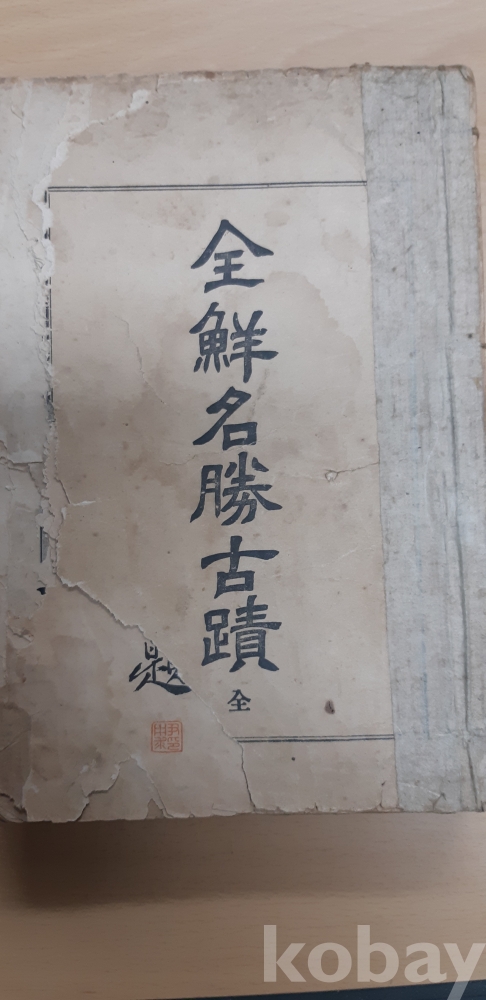 全鮮名勝古蹟
全
題
kobay